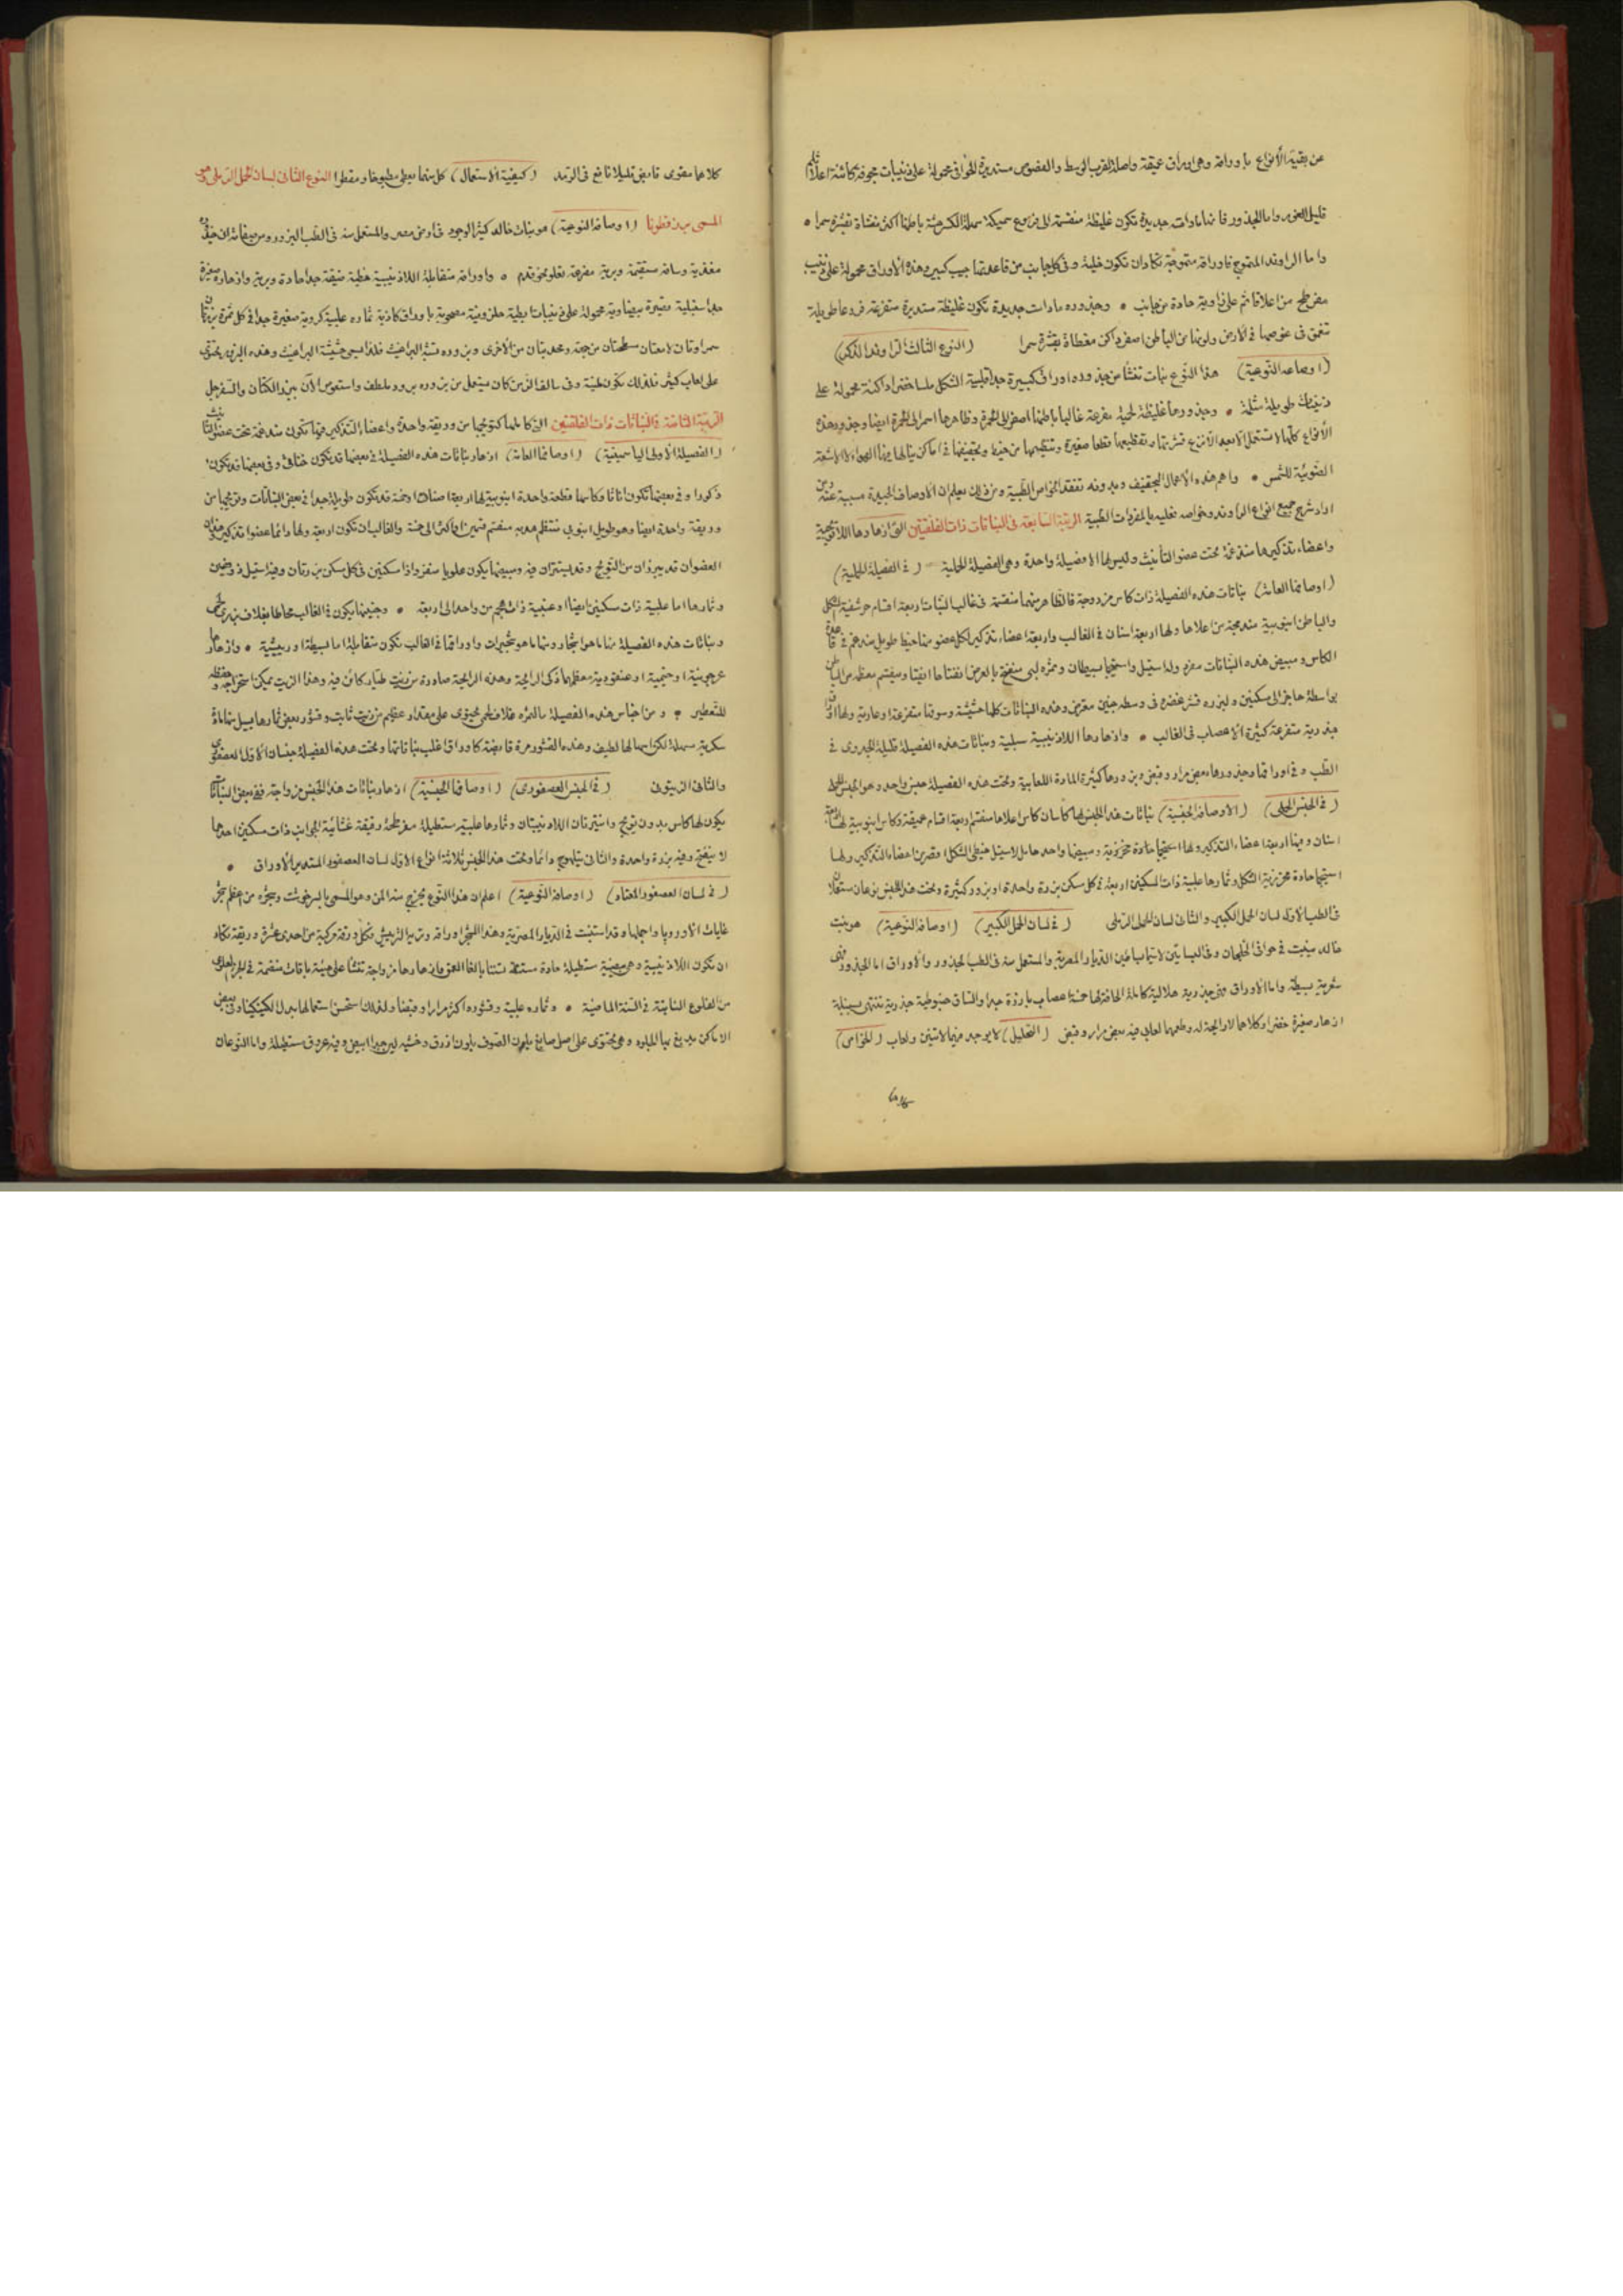 عن بقية الأنواع باوراقه وهى اوراق عميقة واصلة لقرب الوسط والفصوص مستديرة الحوافى محمولة على ذنيبات مجوفة كاشنة اعلاها ثلم
قليل الغور واما الجذور فانها مادامت جديدة تكون غليظة منقسمة الى فروع سميكة سهلة الكسر هشة باطنها اكن مغشاة بقشرة سمرا
واما الراوند المتموج فاوراقه متموجة تكاد ان تكون خلية وفى كل جانب من قاعدتها جيب كبير وهذه الاوراق محمولة على ذنيب
مفرطح من اعلا قائم على زاوية حادة من جانب وجذوره مادامت جديدة تكون غليظة مستديرة متفرعة فروعا طويلة
تتعمق فى غوصها فى الارض ولونها من الباطن اصفر داكن مغطاة بقشرة سمرا (النوع الثالث الراوند الكفى)
(اوصافه النوعية) هذا النوع نبات تنشأ من جذوره اوراق كبيرة جدا قلبية الشكل ملسا خضرا داكنة محمولة على
ذنيبات طويلة مثلثة وجذورها غليظة لحمية متفرعة غالبا باطنها اصفر الى الحمرة وظاهرها اسمر الى الحمرة ايضا وجذور هذه
الأنواع كلها لا تستعمل الا بعد الانزع قشرتها وتقطيعها قطعا صغيرة وتنظيمها من خيط وتجفيفها فى اماكن ينالها فيها الهواء لا الاشعة
الضوئية للشمس واهم هذه الاعمال التجفيف وبدونه تفقد الخواص الطبية ومن ذلك يعلم ان الاوصاف الجيدة مسببة عنه ومن
اراد شرح جميع انواع الراوند وخواصه فعليه بالمفردات الطبية الرتبة السابعة فى النباتات ذات الفلقتين التى ازهارها اللاتويجية
واعضاء تذكيرها مندغمة تحت عضو التأنيث وليس لها الا فصيلة واحدة وهى الفصيلة الحملية (فى الفصيلة الحملية)
(اوصافها العامة) نباتات هذه الفصيلة ذات كاس مزدوجة فالظاهر منها منقسمة فى غالب النبات اربعة اقسام حرشفية الشكل
والباطن انبوبية مندمجة من اعلاها ولها اربعة اسنان فى الغالب واربعة اعضاء تذكير لكل عضو منها خيط طويل مندغم فى قاعدة
الكاس ومبيض هذه النباتات مفرد وله استيل واستجماتسيطان وثمره لبى منفتح بالعرض انفتاحا افقيا ومنقسم معظمه من الباطن
بواسطة حاجز الى سكنين ولبزره قشر غضرفى وسطه جنين معترض وهذه النباتات كلها حشيشة وسوقها متفرعة او عارية ولها اوراق
جذرية متفرعة كثيرة الاعصاب فى الغالب وازهارها اللاذنيبية سبلية ونباتات هذه الفصيلة قليلة الجدوى فى
الطب وفى اوراقها وجذورها بعض مرار وقبض وبزورها كثيرة المادة اللعابية وتحت هذه الفصيلة جنس واحد وهو الجنس الحملى
(فى الجنس الحملى) (الاوصاف الجنسية) نباتات هذا الجنس لها كأسان كاس اعلاها منقسم اربعة اقسام عميقة وكاس انبوبية لها اربعة
اسنان وفيها اربعة اعضاء التذكير ولها استجما حادة مخرزية ومبيضها واحد حامل لاستيل خيطى الشكل اقصر من اعضاء التذكير ولها
استجما حادة مخرزية الشكل وثمارها علبية ذات المسكنين اربعة فى كل سكن بزرة واحدة او بزور كثيرة وتحت هذا الجنس نوعان مستعملان
فى الطب الاول لسان الحمل الكبير والثانى لسان الحمل الرملى (فى لسان الحمل الكبير) (اوصافه النوعية) هو نبت
خالد ينبت فى حوافى الخلجان وفى البساتين لاسيما بساتين الديار المصرية والمستعمل منه فى الطب الجذور والاوراق اما الجذور فهى
شعرية بسيطة واما الاوراق فهى جذرية هلالية كاملة الحافة لها خمسة اعصاب بارزة جدا والساق جذرية تنتهى بسنبلة
ازهار صغيرة خضرا وكلاهما لا رائحة له وطعمهما لعابى فيه بعض مرار وقبض (التحليل) لا يوجد فيهما الا تنين ولعاب (الخواص)
كلاهما
كلاهما مقوى قابض قليلا نافع فى الرمد (كيفية الاستعمال) كل منهما يعطى مطبوخا ومقطرا النوع الثانى لسان الحمل الرملى وهو
المسمى ببزر قطونا (اوصافه النوعية) هو نبات خالد كثير الوجود فى ارض مصر والمستعمل منه فى الطب البزور ومن صفاته ان جذوره
مغذية وساقه مستقيمة وبرية متفرعة تعلو نحو قدم واوراقه متقابلة اللاذنيبية خطية ضيقة جدا حادة وبرية وازهاره صغيرة
جدا سنبلية قصيرة بيضاوية محمولة على ذنيبات ابطية حلزونية مصحوبة باوراق كاذبة ثماره علبية كروية صغيرة جدا فى كل ثمرة بزرتان
سمراوتان لامعتان مسطحتان من جهة ومحدبتان من الاخرى وبزوره تشبه البراغيث فلذا سمى حشيشة البراغيث وهذه البزور تحتوى
على لعاب كثير فلذلك تكون ملينة وفى سالف الزمن كان يستعمل من بزوره برود ملطف واستعوض الآن ببزر الكتان والسفرجل
الرتبة الثامنة فى النباتات ذات الفلقتين التى كاملها كتويجها من وريقة واحدة واعضاء التذكير فيها تكون مندغمة تحت عضو التأنيث
(الفصيلة الاولى الياسمينية) (اوصافها العامة) ازهار نباتات هذه الفصيلة فى بعضها قد يكون خناثى وفى بعضها قد يكون
ذكورا وفى بعضها تكون اناثا وكاسها قطعة واحدة انبوبية لها اربعة اسنان او خمسة قد تكون طويلة جدا فى بعض النباتات وتويجها من
وريقة واحدة ايضا وهو طويل انبوبى منتظم هدبه منقسم قسمين او اكثر الى خمسة والغالب ان تكون اربعة ولها دائما عضوا تذكير وهذان
العضوان قد يبرزان من التويج وقد يستتران فيه ومبيضها يكون علويا مفردا ذا سكنين فى كل سكن بزرتان وفيه استيل ذو فصين
وثمارها اما علبية ذات سكنين ايضا او عنبية ذات عجم من واحد الى اربعة وجنينها يكون فى الغالب محاطا بغلاف بزرى لحمى
ونباتات هذه الفصيلة منها ما هو اشجار ومنها ما هو شجيرات واوراقها فى الغالب تكون متقابلة اما بسيطة او ريشية وازهارها
عرجونية او خيمية او عنقودية معظمها ذكى الرائحة وهذه الرائحة صادرة من زيت طيار كائن فيه وهذا الزيت يمكن استخراجه وحفظه
للتعطير ومن اجناس هذه الفصيلة ما لثمره غلاف لحمى محتوى على مقدار عظيم من زيت ثابت وقشور بعض ثمارها يسيل منها مادة
سكرية مسهلة لكن اسهالها لطيف وهذه القشور مرة قابضة كاوراق اغلب نباتاتها وتحت هذه الفصيلة جنسان الاول العصفورى
والثانى الزيتونى (فى الجنس العصفورى) (اوصافه الجنسية) ازهار نباتات هذا الجنس مزواجة ففى بعض النباتات
يكون لها كاس بدون تويج واستيرتان اللاذنيبيتان وثمارها علبية مستطيلة مفرطحة رقيقة غشائية الجوانب ذات سكنين احدهما
لا ينفتح وفيه بزرة واحدة والثانى يتلوج دائما وتحت هذا الجنس ثلاثة انواع الاول لسان العصفور المستدير الاوراق
(فى لسان العصفور المعتاد) (اوصافه النوعية) اعلم ان هذا النوع يخرج منه المن وهو المسمى بالسرخوشت وشجره من اعظم شجر
غابات الاوروپا واجملها وقد استنبت فى الديار المصرية وهذا الشجر اوراقه وترية الترييش وكل ورقة مركبة من احدى عشرة وريقة تكاد
ان تكون اللاذنيبية وهى بيضية مستطيلة حادة مسننة تسننا بالغا العمق وازهارها مزواجة تنشأ على هيئة باقات منقسمة فى الجزء العلوى
من الفلوع النابتة فى السنة الماضية وثماره علبية وقشوره اكثر مرارا وقبضا ولذلك استحسن استعمالها بدل الكينكينا وفى بعض
الاماكن يدبغ بها الجلود وهى تحتوى على اصل صابغ يلون الصوف بلون ازرق وخشبه لين جدا ابيض وفيه عروق مستطيلة واما النوعان